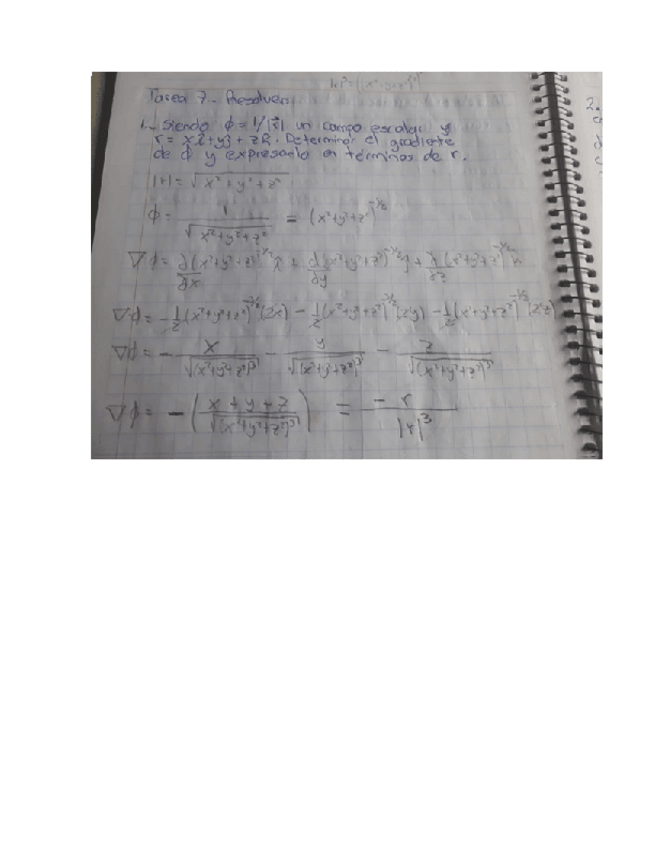 |r|³ = √(x²+y²+z²)³
Tarea 7.- Resolver:
1.- Siendo φ = 1/|r⃗| un campo escalar y
r = xî + yĵ + zk̂. Determinar el gradiente
de φ y expresarlo en términos de r.
|r| = √x²+y²+z²
φ = 1/√x²+y²+z² = (x²+y²+z²)^-1/2
∇φ = ∂/∂x (x²+y²+z²)^-1/2 î + ∂/∂y (x²+y²+z²)^-1/2 ĵ + ∂/∂z (x²+y²+z²)^-1/2 k
∇φ = -1/2 (x²+y²+z²)^-3/2 (2x) - 1/2 (x²+y²+z²)^-3/2 (2y) - 1/2 (x²+y²+z²)^-3/2 (2z)
∇φ = - x/√(x²+y²+z²)³ - y/√(x²+y²+z²)³ - z/√(x²+y²+z²)³
∇φ = -(x+y+z/√(x²+y²+z²)³) = -r/|r|³
2.